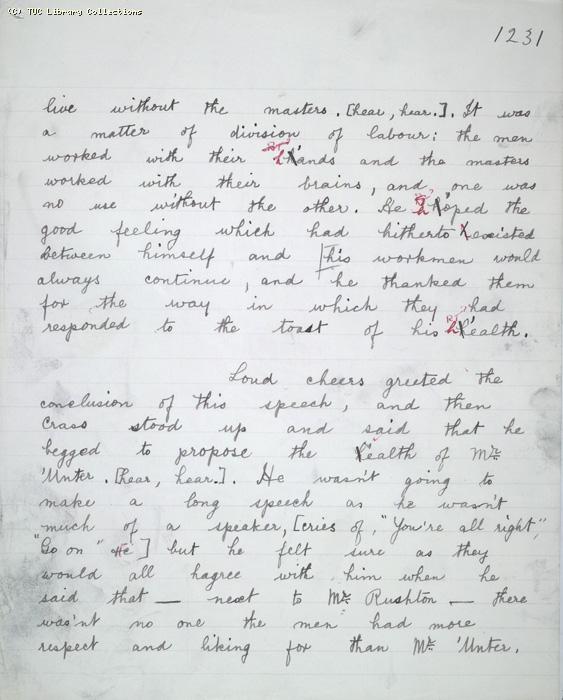 (C) TUC Library Collections
1231
live without the masters. [hear, hear.]. It was
a matter of division of labour: the men
worked with their hands and the masters
worked with their brains, and one was
no use without the other. He hoped the
good feeling which had hitherto existed
between himself and his workmen would
always continue, and he thanked them
for the way in which they had
responded to the toast of his health.
Loud cheers greeted the
conclusion of this speech, and then
Crass stood up and said that he
begged to propose the 'ealth of Mr.
'Unter. [hear, hear.]. He wasn't going to
make a long speech as he wasn't
much of a speaker, [cries of, "You're all right,"
"Go on" &c] but he felt sure as they
would all hagree with him when he
said that — next to Mr. Rushton — there
was'nt no one the men had more
respect and liking for than Mr. 'Unter.